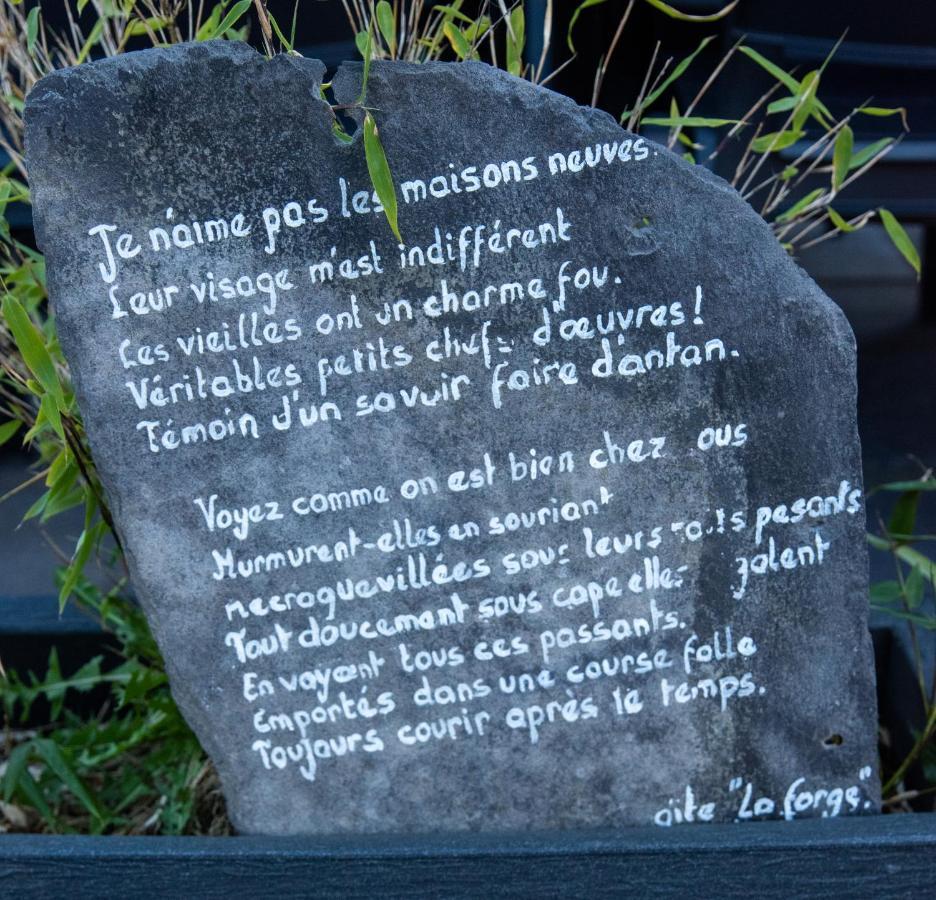 Je n'aime pas les maisons neuves.
Leur visage m'est indifférent
Les vieilles ont un charme fou.
Véritables petits chefs d'œuvres!
Témoin d'un savoir faire d'antan.
Voyez comme on est bien chez ous
Murmurent-elles en souriant
recroquevillées sous leurs toits pesants
Tout doucement sous cape elles
En voyant tous ces passants.
Emportés dans une course folle
Toujours courir après le temps.
gîte "La forge."